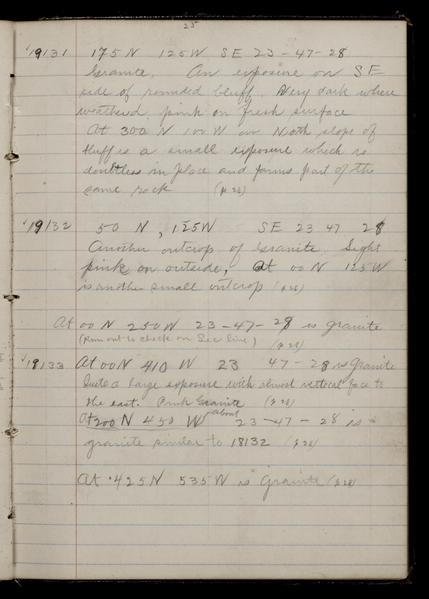 25
19131 175 N 125 W SE 23-47-28
Granite. An exposure on SE
side of rounded bluff. Very dark where
weathered, pink on fresh surface
At 300 N 100 W on North slope of
bluff is a small exposure which is
doubtless in place and forms part of the
same rock (p 28)
19132 50 N, 125W SE 23 47 28
Another outcrop of Granite. Light
pink on outside, At 00 N 125 W
is another small outcrop (p 28)
At 00 N 250 W 23-47-28 is granite
(Run out to check on Sec line) (p 28)
19133 At 00 N 410 W 23 47-28 is Granite
Quite a large exposure with almost vertical face to
the east. Pink Granite (p 28)
At 200 N 450 W about 23-47-28 is
granite similar to 18132 (p 28)
At 425 N 535 W is Granite (p 28)